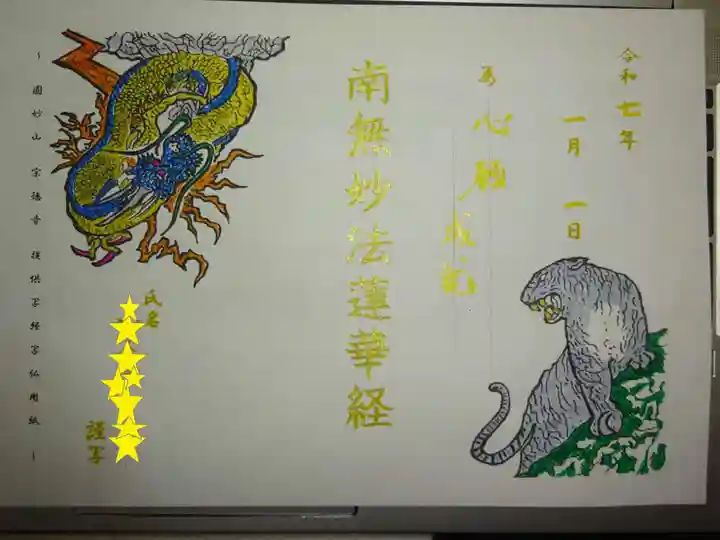 令和七年
一月一日
為
心願成就
南無妙法蓮華経
氏名
謹写
~ 圓妙山 宗徳寺 提供写経写仏用紙 ~